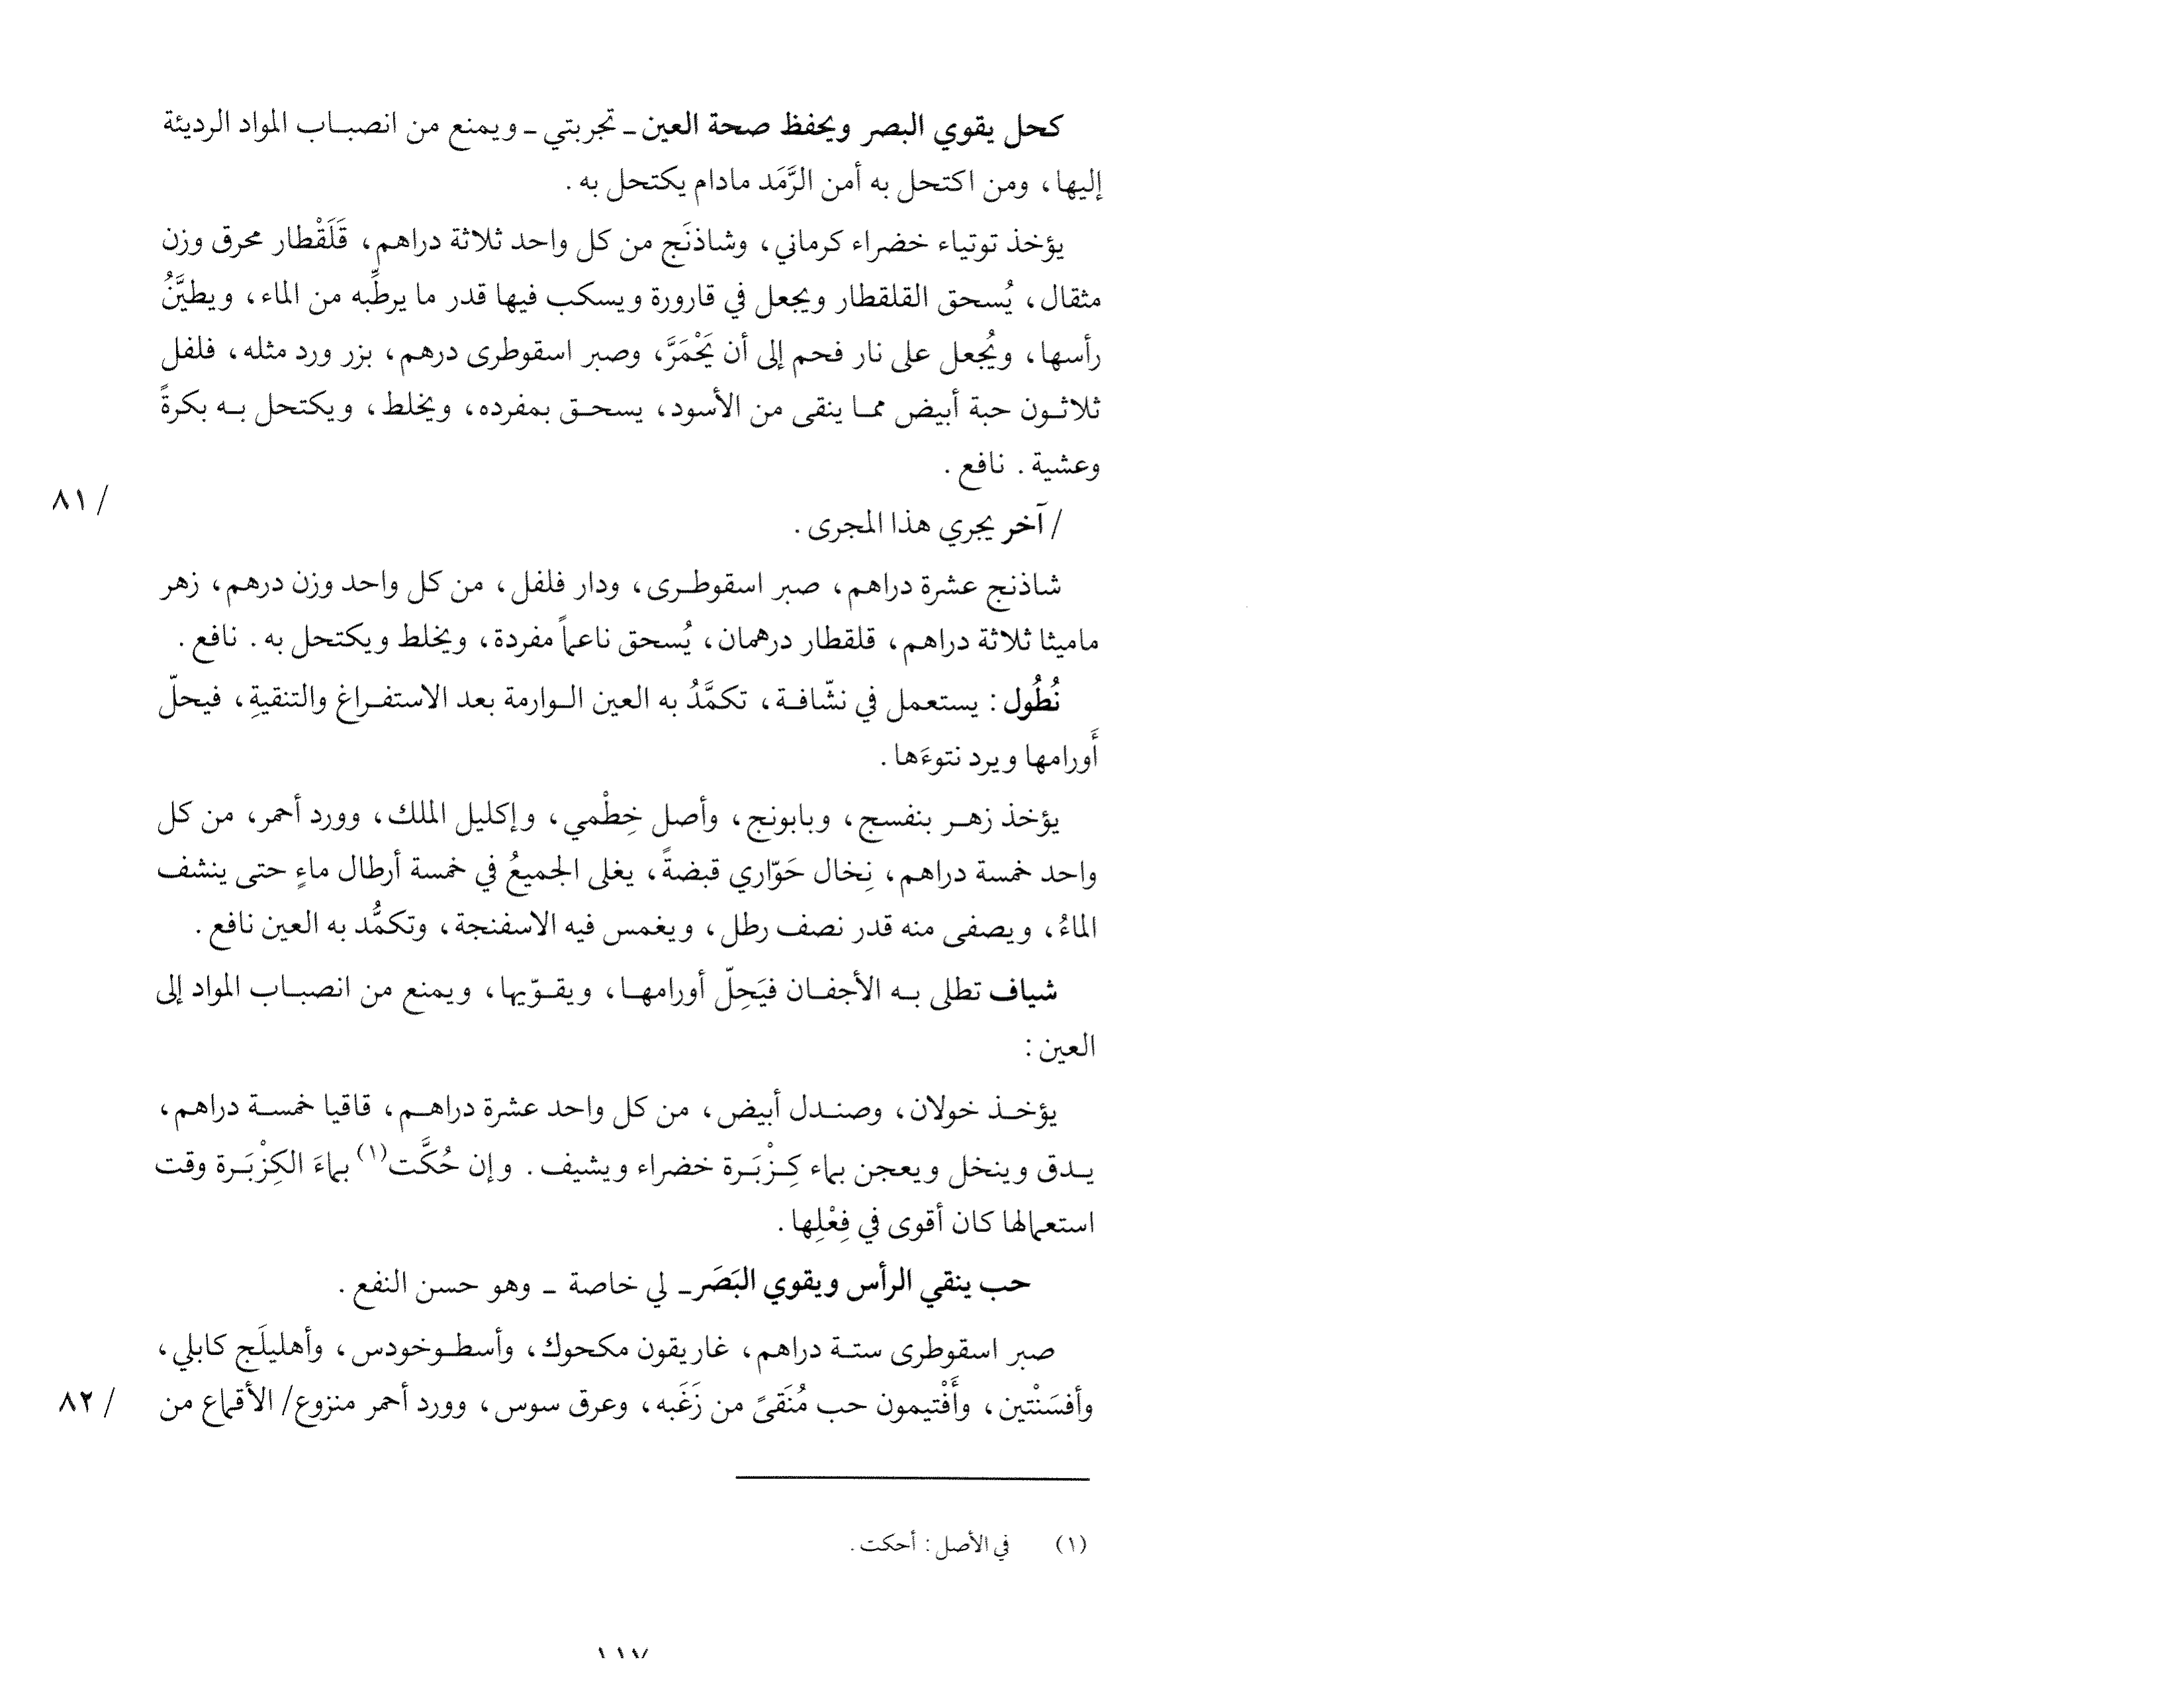 كحل يقوي البصر ويحفظ صحة العين ـ تجربتي ـ ويمنع من انصباب المواد الرديئة
إليها، ومن اكتحل به أمن الرَّمَد مادام يكتحل به.
يؤخذ توتياء خضراء كرماني، وشاذنَج من كل واحد ثلاثة دراهم، قَلَقْطار محرق وزن
مثقال، يُسحق القلقطار ويجعل في قارورة ويسكب فيها قدر ما يرطِّبه من الماء، ويطيَّنُ
رأسها، ويُجعل على نار فحم إلى أن يَحْمَرَّ، وصبر اسقوطرى درهم، بزر ورد مثله، فلفل
ثلاثون حبة أبيض مما ينقى من الأسود، يسحق بمفرده، ويخلط، ويكتحل به بكرةً
وعشية. نافع.
/ ٨١
/ آخر يجري هذا المجرى.
شاذنج عشرة دراهم، صبر اسقوطرى، ودار فلفل، من كل واحد وزن درهم، زهر
ماميثا ثلاثة دراهم، قلقطار درهمان، يُسحق ناعماً مفردة، ويخلط ويكتحل به. نافع.
نُطُول: يستعمل في نشّافة، تكمَّدُ به العين الوارمة بعد الاستفراغ والتنقيةِ، فيحلّ
أَورامها ويرد نتوءَها.
يؤخذ زهر بنفسج، وبابونج، وأصل خِطْمي، وإكليل الملك، وورد أحمر، من كل
واحد خمسة دراهم، نِخال حَوّاري قبضةً، يغلى الجميعُ في خمسة أرطال ماءٍ حتى ينشف
الماءُ، ويصفى منه قدر نصف رطل، ويغمس فيه الاسفنجة، وتكمُّد به العين نافع.
شياف تطلى به الأجفان فيَحِلّ أورامها، ويقوّيها، ويمنع من انصباب المواد إلى
العين:
يؤخذ خولان، وصندل أبيض، من كل واحد عشرة دراهم، قاقيا خمسة دراهم،
يدق وينخل ويعجن بماء كِزْبَرة خضراء ويشيف. وإن حُكَّت(١) بماءَ الكِزْبَرة وقت
استعمالها كان أقوى في فِعْلِها.
حب ينقي الرأس ويقوي البَصَر ـ لي خاصة ـ وهو حسن النفع.
صبر اسقوطرى ستة دراهم، غاريقون مكحوك، وأسطوخودس، وأهليلَج كابلي،
وأفسَنْتين، وأَفْتيمون حب مُنَقىً من زَغَبه، وعرق سوس، وورد أحمر منزوع/ الأقماع من
/ ٨٢
(١) في الأصل: أحكت.
١١٧